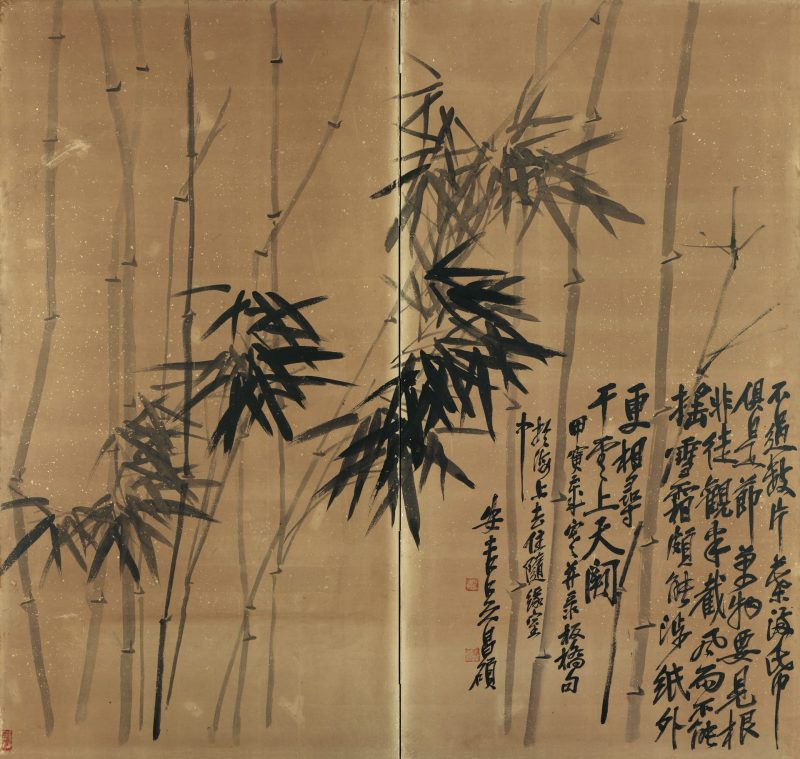 不過數片葉滿紙
俱是節萬物要見根
非徒觀半截風雨不能
搖雪霜頗能涉紙外
更相尋
干雲上天闕
甲寅 寒 并录板橋句
於海上去住隨緣室
中
安吉吳昌碩